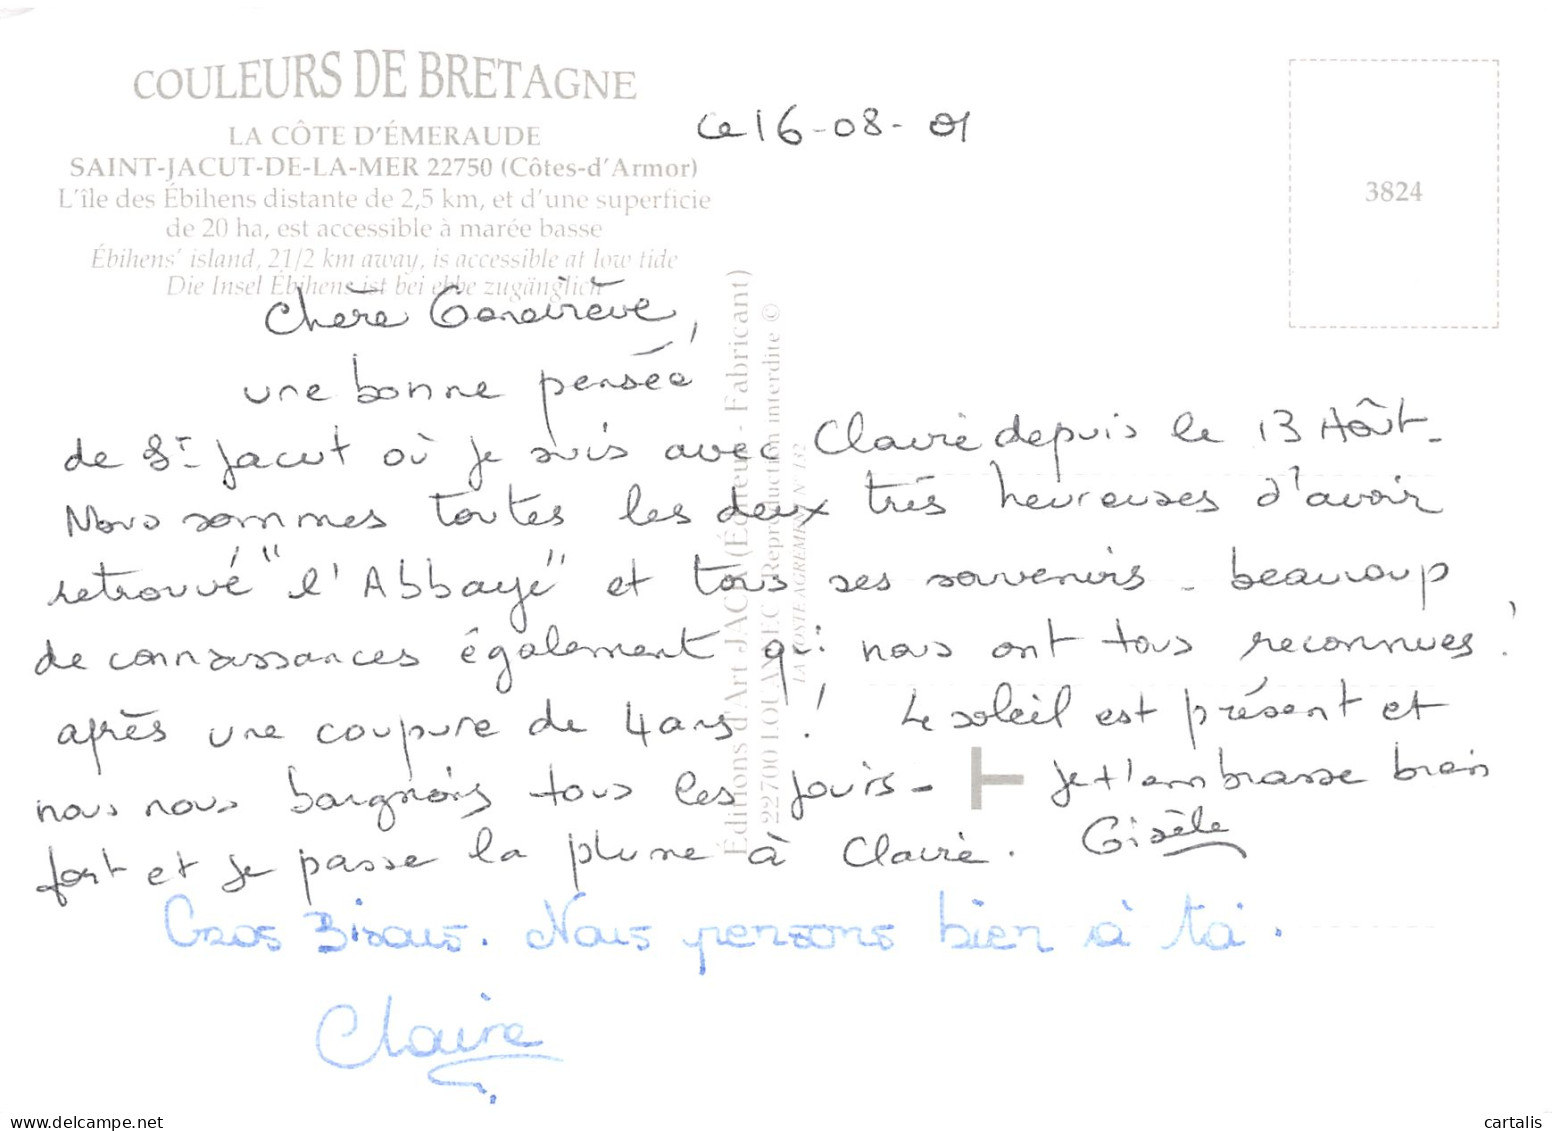 COULEURS DE BRETAGNE
LA CÔTE D'ÉMERAUDE
SAINT-JACUT-DE-LA-MER 22750 (Côtes-d'Armor)
L'île des Ébihens distante de 2,5 km, et d'une superficie
de 20 ha, est accessible à marée basse
Ébihens' island, 21/2 km away, is accessible at low tide
Die Insel Ébihens ist bei ebbe zugänglich
Le 16-08-01
3824
Chère Geneviève,
une bonne pensée
de St Jacut où je suis avec Claire depuis le 13 Août-
Nous sommes toutes les deux très heureuses d'avoir
retrouvé "l'Abbaye" et tous ses souvenirs - beaucoup
de connaissances également qui nous ont tous reconnues !
après une coupure de 4 ans ! Le soleil est présent et
nous nous baignons tous les jours - Je t'embrasse bien
fort et je passe la plume à Claire. Gisèle
Gros Bisous. Nous pensons bien à toi.
Claire
Éditions d'Art JACK (Éditeur - Fabricant)
22700 LOUANNEC Reproduction interdite ©
LA POSTE AGREMENT N° 132
Ebihens, Vue Aerienne
cartalis